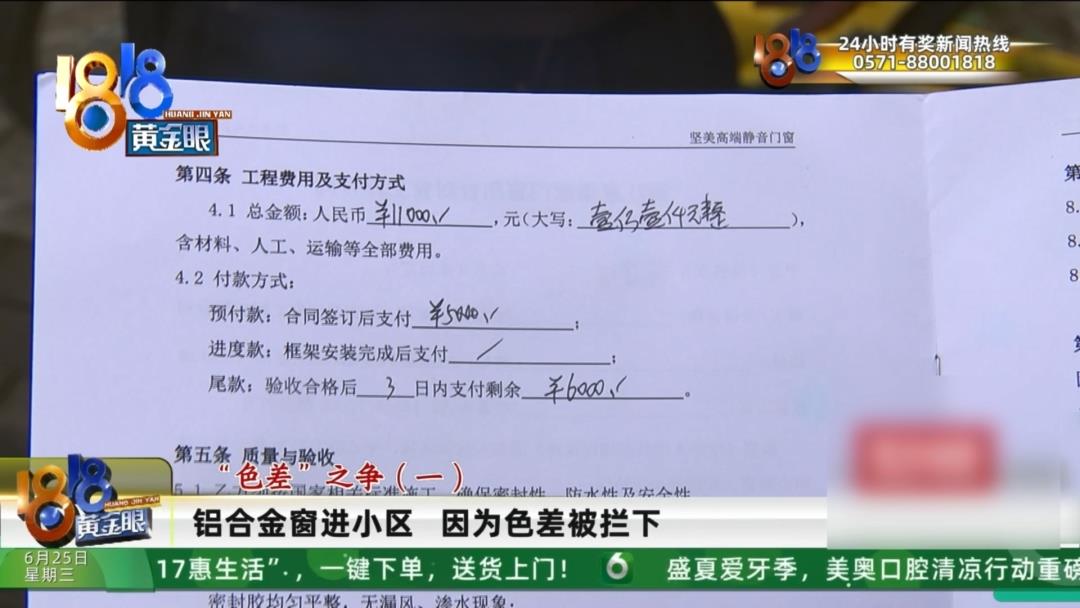 1818
HUANG JIN YAN
黄金眼
1818
24小时有奖新闻热线
0571-88001818
坚美高端静音门窗
第四条 工程费用及支付方式
4.1 总金额:人民币 ¥11000,元(大写:壹万壹仟元整),
含材料、人工、运输等全部费用。
4.2 付款方式:
预付款:合同签订后支付 ¥5000;
进度款:框架安装完成后支付 /;
尾款:验收合格后 3 日内支付剩余 ¥6000。
第五条 质量与验收
第
8.
8.
8
1818
HUANG JIN YAN
黄金眼
“色差”之争(一)
铝合金窗进小区 因为色差被拦下
6月25日
星期三
17惠生活”.,一键下单,送货上门! 6 盛夏爱牙季,美奥口腔清凉行动重磅
密封胶均匀平整,无漏风、渗水现象;